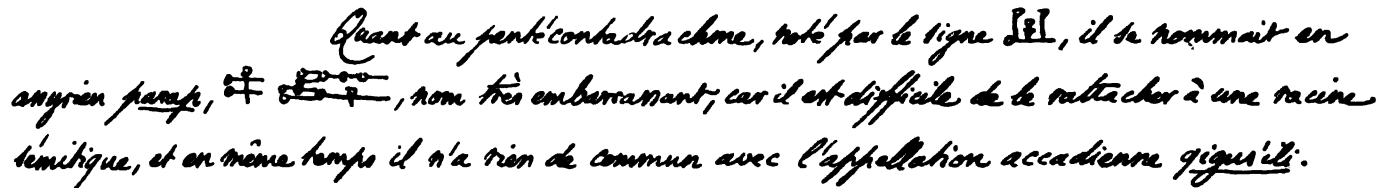 Quant au pentécontadrachme, noté par le signe , il se nommait en
assyrien parap, , nom très embarrassant, car il est difficile de le rattacher à une racine
sémitique, et en même temps il n'a rien de commun avec l'appellation accadienne